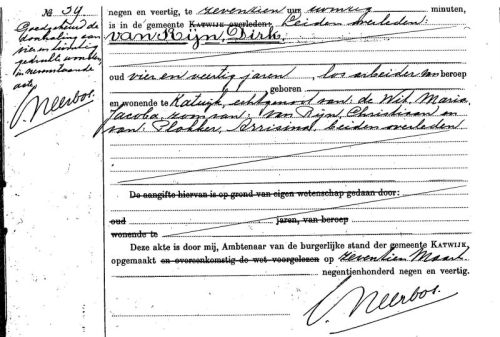 № 34
Goedgekeurd de
doorhaling van
vier en twintig
gedrukte woorden
in nevenstaande
akte
Neerbos.
negen en veertig, te zeventien uur twintig minuten,
is in de gemeente Katwijk overleden: Leiden overleden:
van Rijn, Dirk,
oud vier en veertig jaren, los arbeider van beroep
geboren
en wonende te Katwijk, echtgenoot van: de Wit, Maria
Jacoba, zoon van: van Rijn, Christiaan en
van: Plokker, Arrisina, beiden overleden
De aangifte hiervan is op grond van eigen wetenschap gedaan door:
oud jaren, van beroep
wonende te
Deze akte is door mij, Ambtenaar van de burgerlijke stand der gemeente Katwijk,
opgemaakt en overeenkomstig de wet voorgelezen op zeventien Maart
negentienhonderd negen en veertig.
Neerbos.